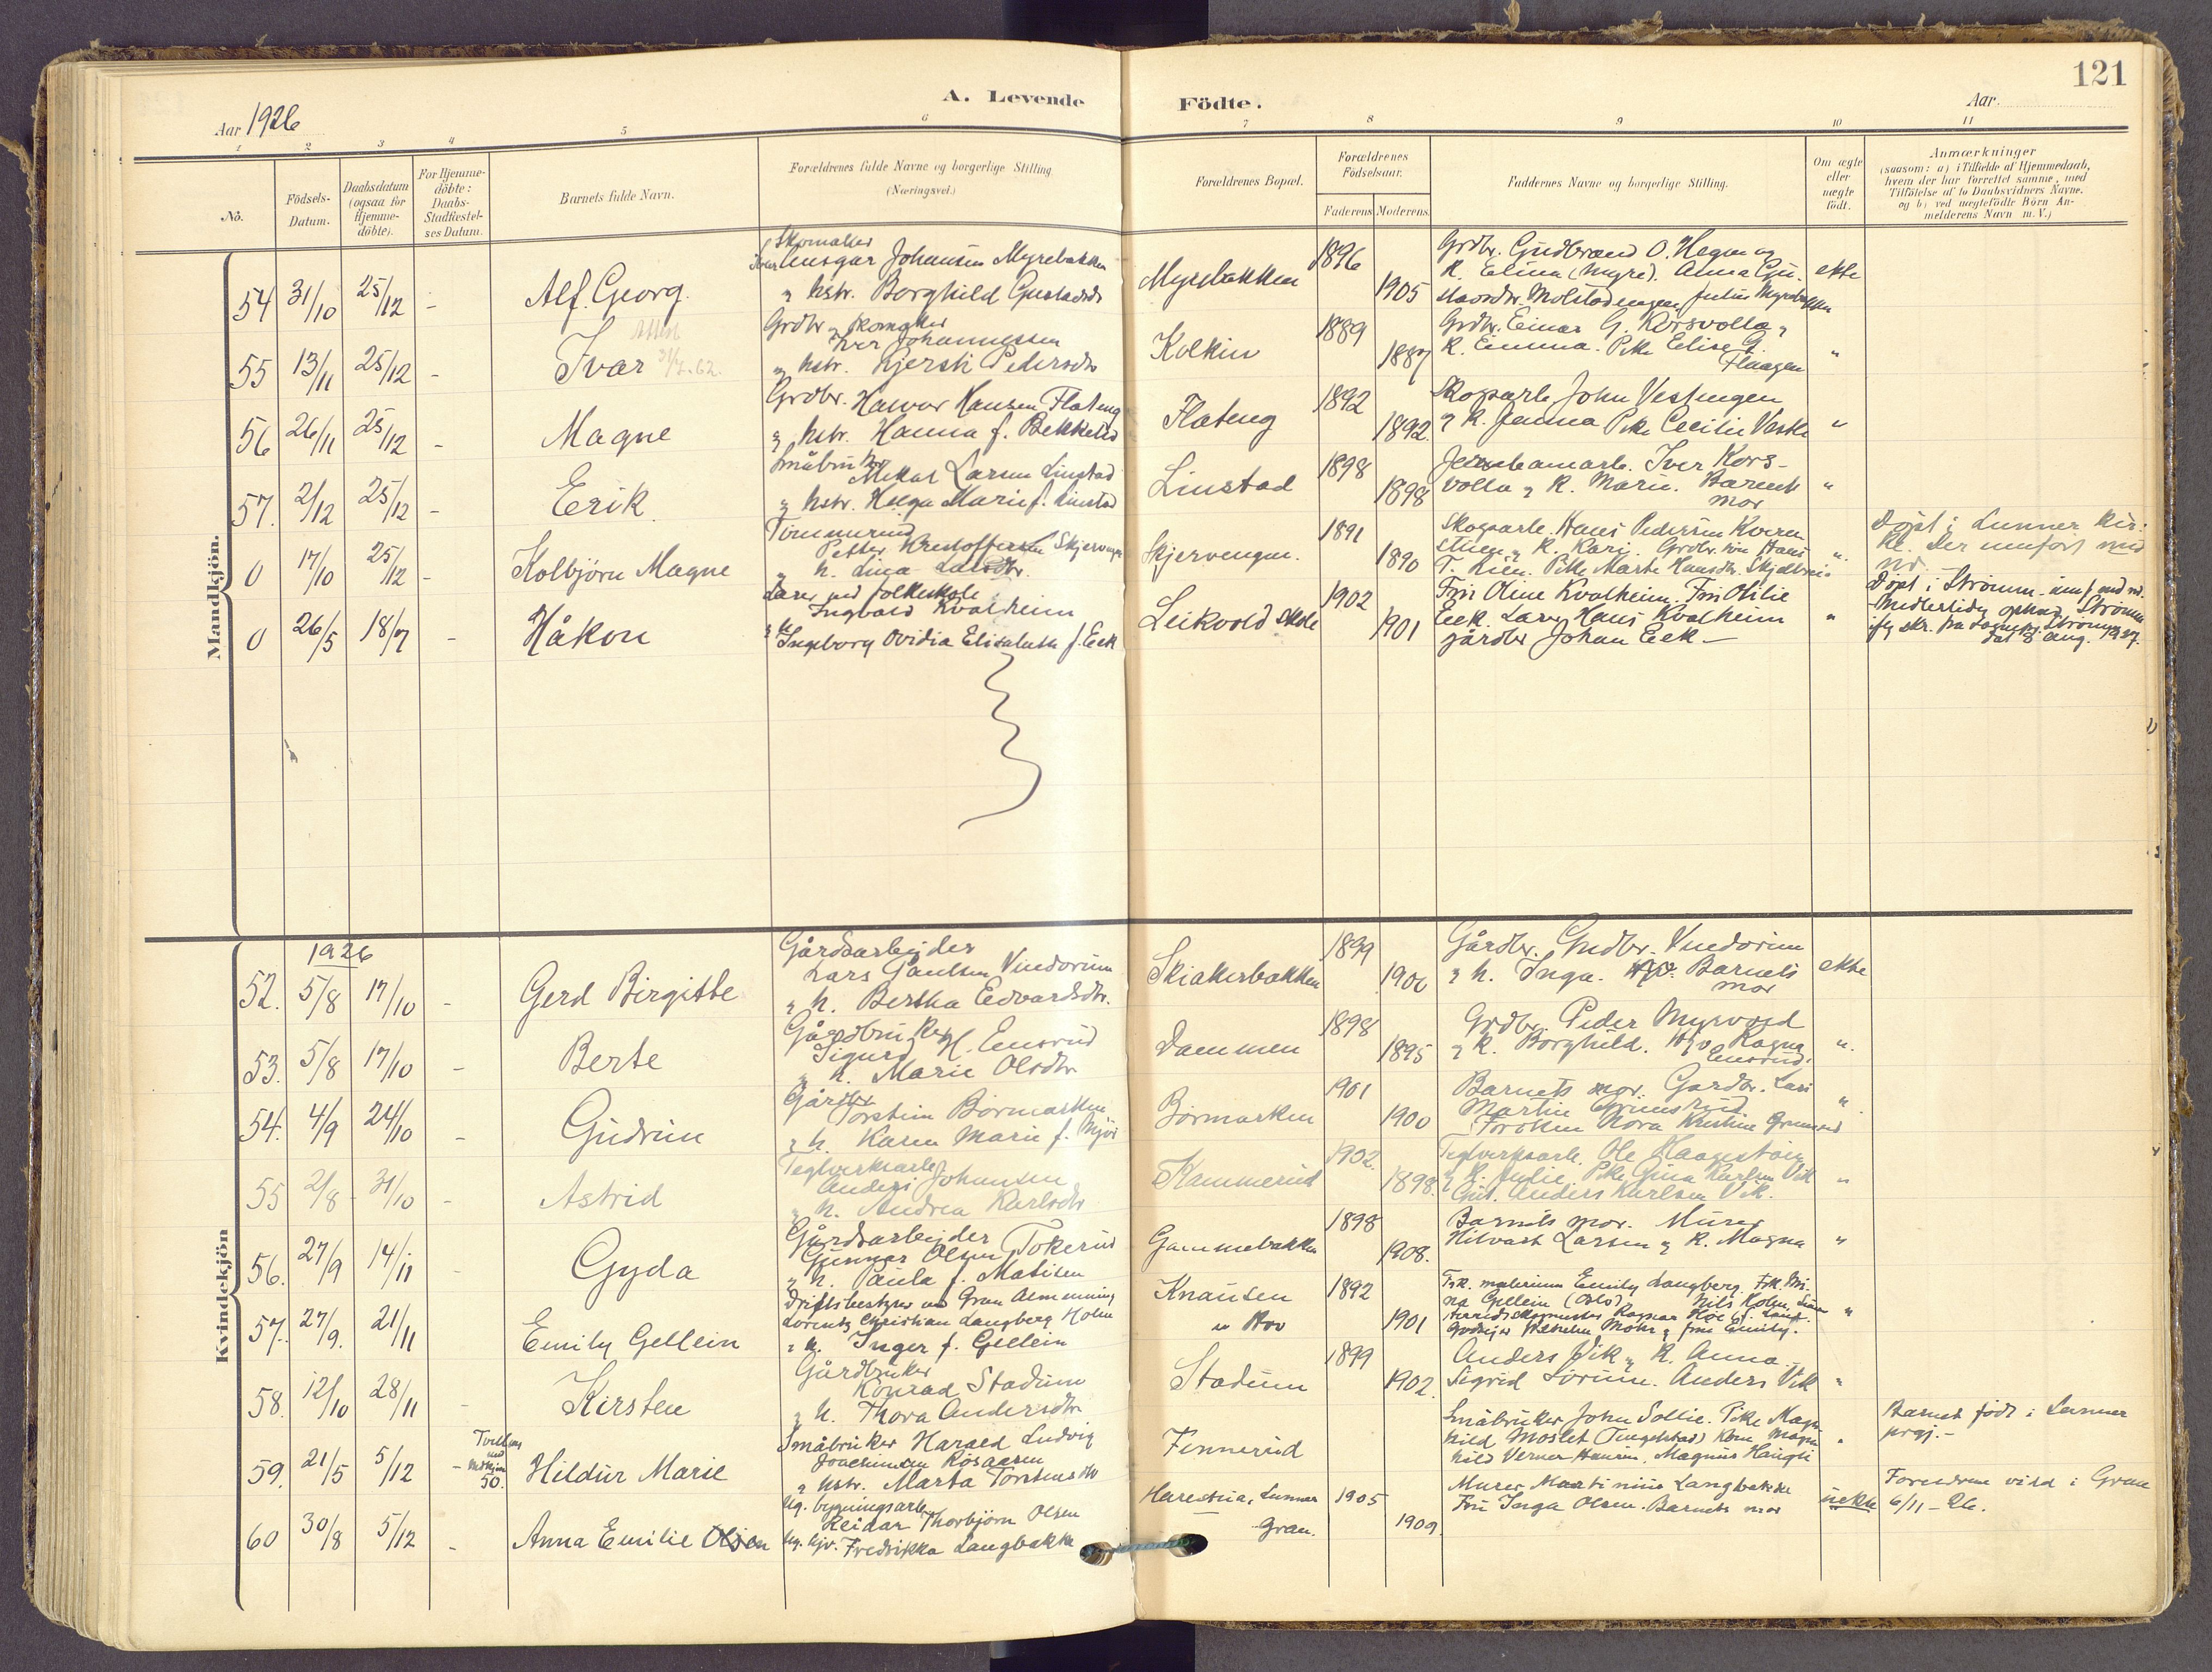 121
A. Levende Födte.
Aar 1926
Aar
1 2 3 4 5 6 7 8 9 10 11
Nô.
Födsels-
Datum.
Daabsdatum
(ogsaa for
Hjemme-
döbte).
For Hjemme-
döbte:
Daabs-
Stadfæstel-
ses Datum.
Barnets fulde Navn.
Forældrenes fulde Navne og borgerlige Stilling
(Næringsvei.)
Forældrenes Bopæl.
Forældrenes
Födselsaar.
Faderens Moderens.
Faddernes Navne og borgerlige Stilling.
Om ægte
eller
uægte
födt.
Anmærkninger
(saasom: a) i Tilfælde af Hjemmedaab,
hvem der har forrettet samme, med
Tilföielse af to Daabsvidners Navne.
og b) ved uægtefödte Börn An-
melderens Navn m.V.)
Mandkjön.
54 31/10 25/12 - Alf Georg.
Skomaker
Ansgar Johansen Myrebakken
" hstr. Borghild Gustavsdr
Myrebakken 1896 1905
Grdbr. Gudbrand O. Hegen og
K. Elina (Myre). Anna
Molstadengen Julius Myrebakken
ekte
55 13/11 25/12 - Ivar
Attest
31/7.62.
Grdbr. skomaker
Iver Johannessen
" hstr. Kjersti Pedersdr
Kolkin 1889 1887
Grdbr. Einar G. Korsvolla "
K. Emma. Pike Elise G.
Flaagen
"
56 26/11 25/12 - Magne
Grdbr. Halvor Hansen Flateng
" hstr. Hanna f. Bekkelid
Flateng 1892 1892.
Skogsarb John Vestengen
" K. Jenna Pike Cecilie
"
57. 2/12 25/12 - Erik
Småbruker
Mekal Larsen Linstad
" hstr. Helga Marie f. Linstad
Linstad 1898 1898
Iver Kors-
volla " K. Marie. Barnets
mor
"
0 17/10 25/12 - Kolbjörn Magne
Petter Kristoffersen Skjervengen
" h. Lina Larsdtr.
Skjervengen. 1891 1890
Skogsarb. Hans Pedersen Kvern
stuen " K. Kari. Grdbr. sön Hans
T. Lien. Pike Marte Hansdtr.
"
Döpt i Lunner kir-
ke. Der innfört med
nr.
0 26/5 18/7 - Håkon
Lærer ved folkeskole
Ingvald Kvalheim
" h. Ingeborg Ovidia Elisabeth f. Eek
Leikvold skole 1902 1901
Fru Oline Kvalheim. Fru Otilie
Eek. Lærer Hans Kvalheim
gårdbr Johan Eek -
"
Döpt i Strömm. innf. med nr.
Midlertidig ophold Strömm
ifg skr. fra Sognepr. Strömm
dat 8 aug. 1927.
Kvindekjön
1926
52. 5/8 17/10 - Gerd Birgitte
Gårdsarbeider
Lars Paulsen Vindorum
" h. Bertha Edvardsdtr.
Skiakerbakken 1899 1900
Gårdbr. Gudbr. Vindorum
" h. Inga. Barnets
mor
ekte
53. 5/8 17/10 - Berte
Gårdbruker
Sigurd H. Emsrud
" h. Marie Olsdtr
Dammen 1898 1895
Grdbr. Peder Myrvold
" K. Borghild. Kjv Ragna
Emsrud.
"
54. 4/9 24/10 - Gudrun
Gårdbr
Torstein Börmarken
" h. Karen Marie f. Myör
Börmarken 1901 1900
Barnets mor. Gardbr. Lars
Martin Grimsrud
Fröken Nora Kristine Grimsrud
"
55 2/8 31/10 - Astrid
Teglverksarb
Anders Johansen
" h. Andrea Karlsdtr
Kammerud 1902. 1898.
Teglverksarb. Ole Haagestöin
" K. Julie. Pike Gina Karlsen Vik
Gut. Anders Karlsen Vik.
"
56. 27/9 14/11 - Gyda
Gårdsarbeider
Gunnar Olsen Tokerud
" h. Paula f. Matisen
Gammebakken 1898 1908.
Barnets mor. Murer
Hilvart Larsen " K. Magna
"
57. 27/9. 21/11 Emily Gellein
Driftsbestyrer ved Gran Almenning
Lorentz Christian Langberg Holm
" h. Inger f. Gellein
Knausen
Hov
1892 1901
Frk. malerinne Emily Langberg. Frk. Mi-
na Gellein (Oslo). Nils Holm,
Herredsskogmester Ragnar Hoe
Godseier Wilhelm Mohr " frue Emily.
"
58. 12/10 28/11 - Kirsten
Gårdbruker
Konrad Stadum
" h. Thora Andersdtr
Stadum 1899 1902.
Anders Vik " K. Anna.
Sigrid Sörum. Anders Vik
"
59. 21/5 5/12
Tvilling
med
50.
Hildur Marie
Småbruker Harald Ludvig
Joachimsen Rosaasen
" hstr. Marta Torstensdtr
Fennerud
Småbruker John Sollie. Pike Magn
hild Moslet (Tingelstad) Kone Magn
hild Verner Hansen. Magnus Haugli
"
Barnet födt i Lunner
prgj. -
60 30/8 5/12 - Anna Emilie Olsen
Ug. bygningsarb.
Reidar Thorbjörn Olsen
Ug. kjv. Fredrikke Langbakke
Harestua, Lunner
Gran.
1905 1909
Murer Martinius Langbakke
Fru Inga Olsen. Barnets mor
uekte
Foreldrene viet i Gran
6/11 - 26.